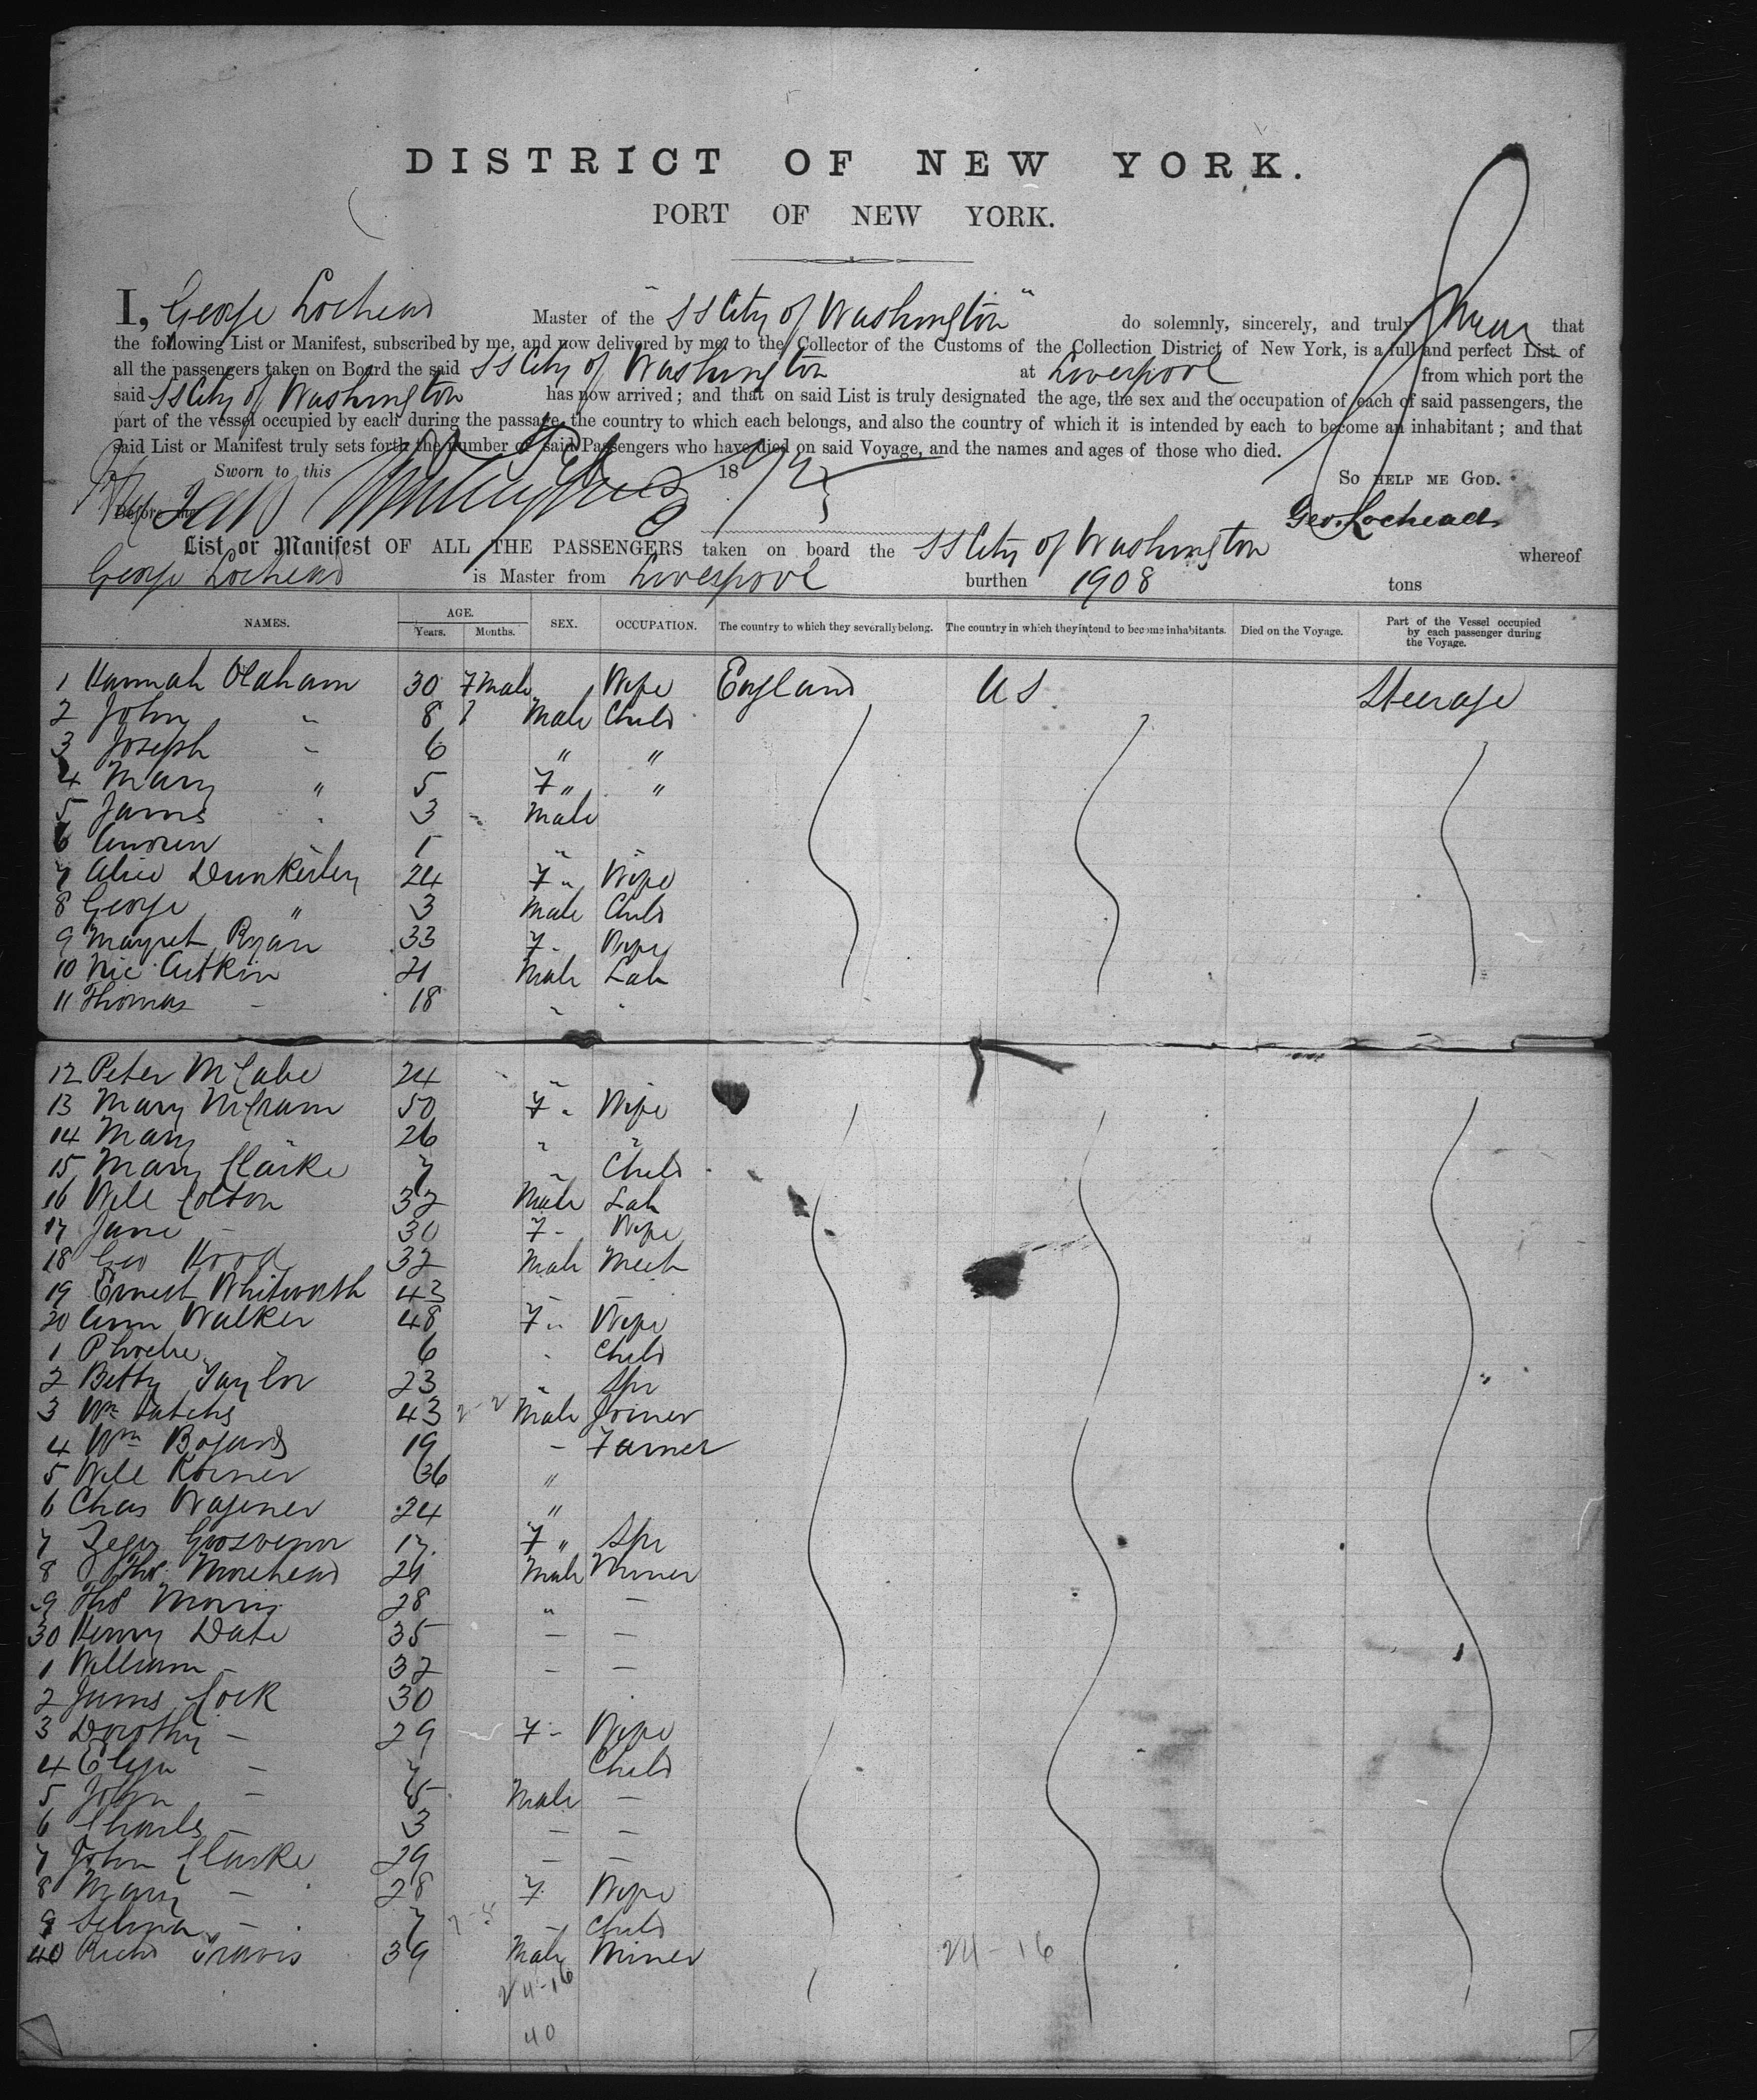 DISTRICT OF NEW YORK.
PORT OF NEW YORK.
I, George Lochead Master of the "SS City of Washington" do solemnly, sincerely, and truly swear that
the following List or Manifest, subscribed by me, and now delivered by me to the Collector of the Customs of the Collection District of New York, is a full and perfect List of
all the passengers taken on Board the said SS City of Washington at Liverpool from which port the
said SS City of Washington has now arrived; and that on said List is truly designated the age, the sex and the occupation of each of said passengers, the
part of the vessel occupied by each during the passage, the country to which each belongs, and also the country of which it is intended by each to become an inhabitant; and that
said List or Manifest truly sets forth the number of said Passengers who have died on said Voyage, and the names and ages of those who died.
Sworn to this 18 So HELP ME GOD.
Before me Geo. Lochead
List or Manifest OF ALL THE PASSENGERS taken on board the SS City of Washington whereof
George Lochead is Master from Liverpool burthen 1908 tons
NAMES. AGE. Years. Months. SEX. OCCUPATION. The country to which they severally belong. The country in which they intend to become inhabitants. Died on the Voyage. Part of the Vessel occupied by each passenger during the Voyage.
1 Hannah Oldham 30 Wife England US Steerage
2 John " 8 Male Child
3 Joseph " 6 " "
4 Mary " 5 F " "
5 James 3 Male
6 Andrew 1 "
7 Alice Dunkerley 24 F " Wife
8 George " 3 Male Child
9 Margret Ryan 33 F - Wife
10 Nic Aitkin 21 Male Lab
11 Thomas - 18 " "
12 Peter McCabe 24 "
13 Mary 50 F " Wife
14 Mary 26 " "
15 Mary Clarke 7 " Child
16 Will Colton 32 Male Lab
17 Jane - 30 F - Wife
18 Geo Hood 32 Male Mech
19 Ernest Whitworth 43 - -
20 Ann Walker 48 F " Wife
1 Phoebe " 6 " Child
2 Betty Taylor 23 " Spr
3 Wm 43 Male Joiner
4 Wm 19 - Farmer
5 Will 36 "
6 Chas Wagener 24 "
7 Grosvenor 17 F " Spr
8 Thos Morehead 21 Male Miner
9 Thos Morris 28 " -
30 Henry Date 35 - -
1 William - 32 - -
2 James Cock 30
3 Dorothy - 29 F - Wife
4 Eliza - 7 Child
5 John - 5 Male -
6 Charles - 3 - -
7 John Clarke 29 - -
8 Mary - 28 F Wife
9 Selina - 7 - Child
40 Richd Travis 39 Male Miner 24-16
24-16
40